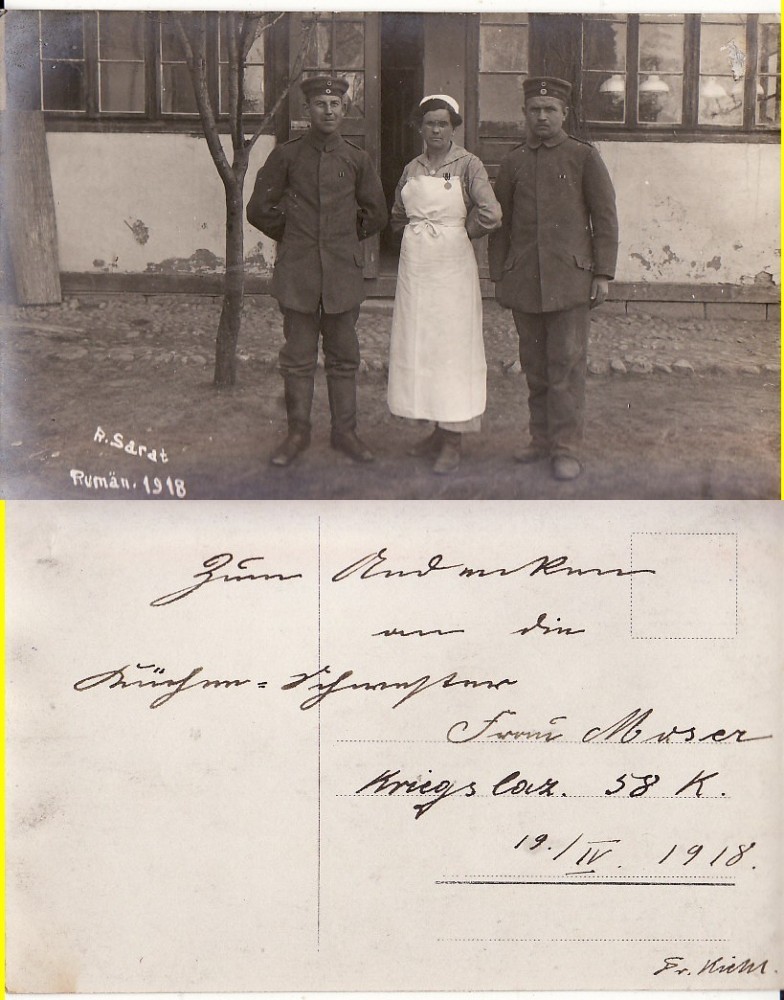 R. Sarat
Rumän. 1918
Zum Andenken
an die
Küchen=Schwester
Frau Moser
Kriegslaz. 58 K.
19./IV. 1918.
Fr. Kichl.